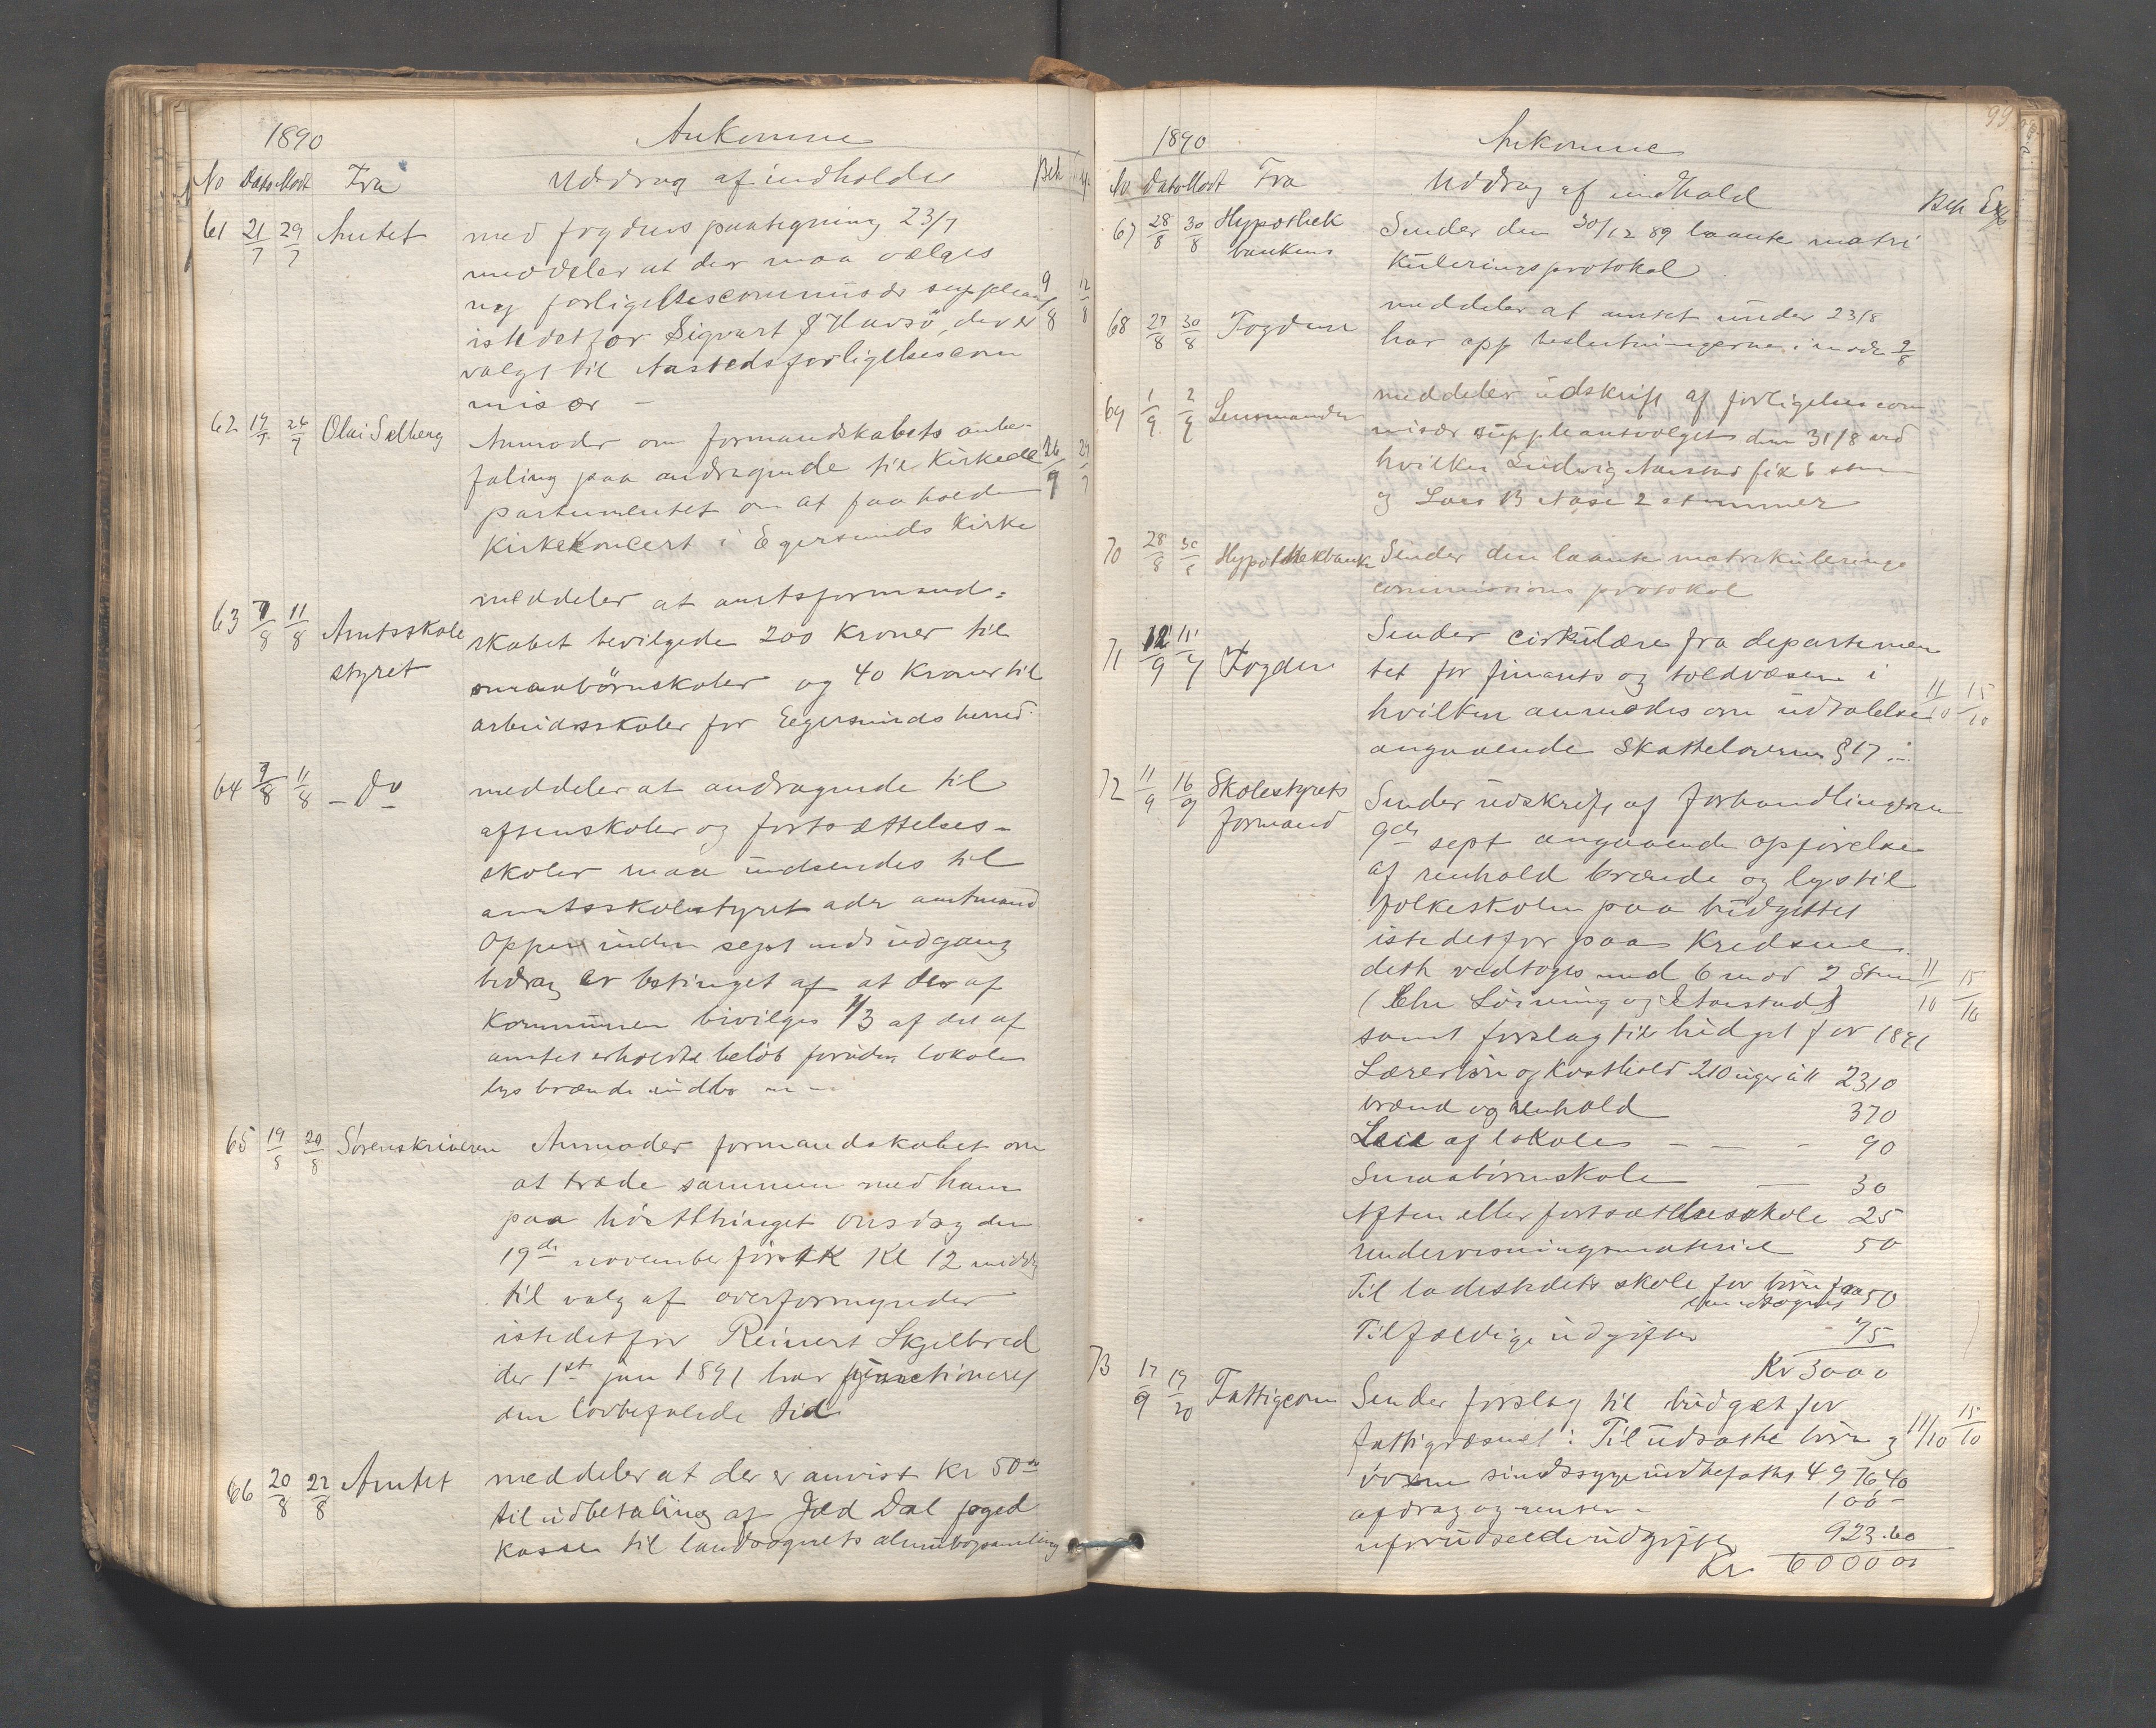 1890 Ankomne
No Dato Modt Fra Uddrag af indholdet Beh
61 21/7 29/7 Amtet med fogdens paategning 23/7
meddeler at der maa vælges
ny forligelsescommisær suppleant 9/8 12/8
istedetfor Sigvart S Havsö, der er
valgt til Aastedsforligelsescom
misær –
62 19/7 26/7 Olai Selberg Anmoder om formandskabets anbe-
faling paa andragende til Kirkede 26/7 29/7
partementet om at faa holde
Kirkekoncert i Egersunds Kirke
63 7/8 11/8 Amtsskole meddeler at amtsformand-
styret skabet bevilgede 200 Kroner til
smaabörnskoler og 40 Kroner til
arbeidsskoler for Egersunds herred.
64 9/8 11/8 – do meddeler at andragende til
aftenskoler og fortsættelses-
skoler maa indsendes til
amtsskolestyret ader amtmand
Oppen inden sept mds udgang
bidrag er betinget af at der af
Kommunen bevilges 1/3 af det af
amtet erholdte belöb foruden lokale
lys brænde indbo m m
65 19/8 20/8 Sorenskriveren Anmoder formandskabet om
at træde sammen med ham
paa höstthinget onsdag den
19de november förstk Kl 12 middg
til valg af overformynder
istedetfor Reinert Skjelbred
der 1st jan 1891 har functioneret
den lovbefalede tid
66 20/8 22/8 Amtet meddeler at der er anvist Kr 50 00
til udbetaling af Jæd Dal foged
kasse til landsognets almuebogsamling
99
1890 Ankomne
No Dato Modt Fra Uddrag af indhold Beh Exp
67 28/8 30/8 Hypothek Sender den 30/12 89 laante matri
bankens kuleringsprotokol
68 27/8 30/8 Fogden meddeler at amtet under 23/8
har app beslutningerne i möde 9/8
69 1/9 2/9 Lensmanden meddeler udskrift af forligelsescom
misær suppleantvalget den 31/8 ved
hvilken Ludvig Aarstad fik 6 stem
og Lars B Aase 2 stemmer
70 28/8 30/8 Hypothekbank Sender den laante matrikulerings
commissions protokol
71 12/9 11/9 Fogden Sender cirkulære fra departemen
tet for finants og toldvæsen i 11/10 15/10
hvilken anmodes om udtalelse
angaaende Skatteloven § 17
72 11/9 16/9 Skolestyrets Sender udskrift af forhandlingerne
formand 9de sept angaaende opförelse
af renhold brænde og lys til
folkeskolen paa budgettet
istedetfor paa Kredsene.
dette vedtoges med 6 mod 2 Stem 11/10 15/10
(Chr Löining og Aarstad)
samt forslag til budget for 1891
Lærerlön og Kosthold 210 uger à 11 2310
brænd og renhold 370
Leie af lokaler – – – 90
Smaabörnskole — 30
Aften eller fortsættelsesskole 25
Undervisningsmateriel 50
Til ladestedets skole for börn fra
landsognet 50
Tilfældige udgifter 75
Kr 3000
73 17/9 19/20 Fattigcom Sender forslag til budget for
fattigvæsnet: Til udsatte börn og 11/10 15/10
voxne sindssyge indbefattet 4976 40
afdrag og renter 100 –
uforudseede udgifter 923.60
Kr. 6000 00